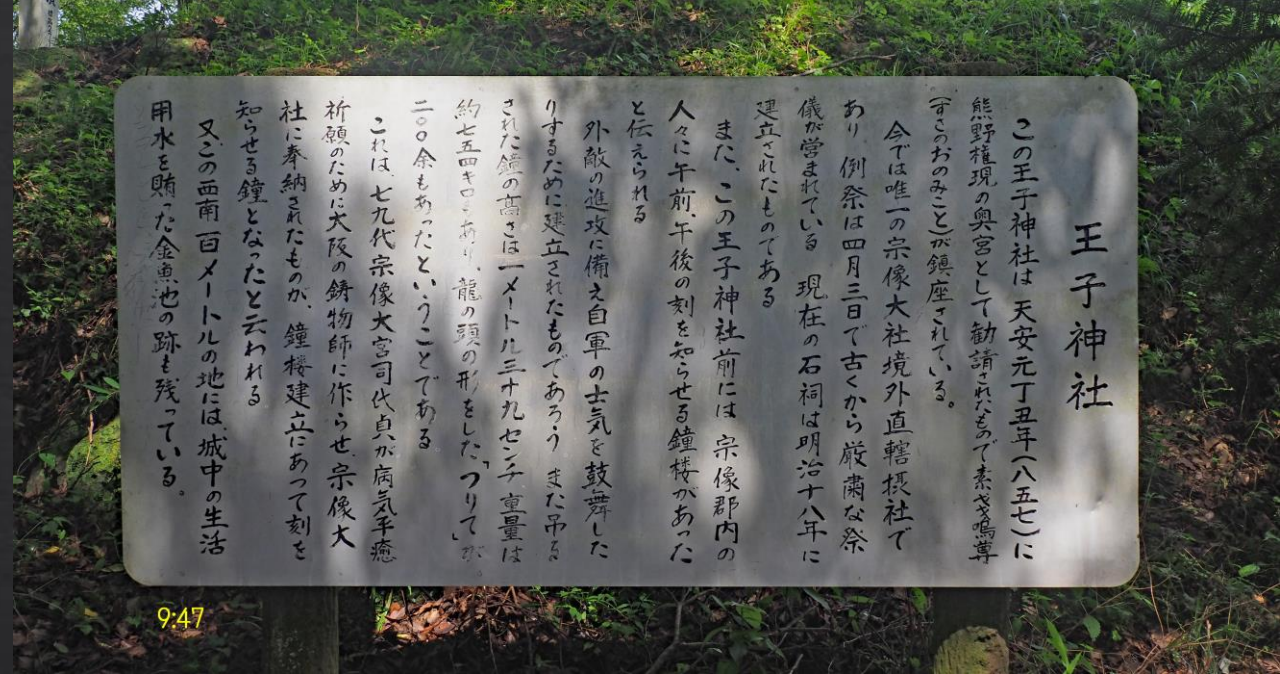 王子神社
この王子神社は 天安元丁丑年(八五七)に
熊野権現の奥宮として勧請されたもので素戔嗚尊
(すさのおのみこと)が鎮座されている。
今では唯一の宗像大社境外直轄摂社で
あり、例祭は四月三日で古くから厳粛な祭
儀が営まれている 現在の石祠は明治十八年に
建立されたものてある
また、この王子神社前には 宗像郡内の
人々に午前、午後の刻を知らせる鐘楼があった
と伝えられる
外敵の進攻に備え自軍の士気を鼓舞した
りするために建立されたものであろう また吊る
された鐘の高さは一メートル三十九センチ 重量は
約七五四キロあり、龍の頭の形をした「つりて」が
二〇〇余もあったということである
これは、七九代宗像大宮司氏貞が病気平癒
祈願のために大阪の鋳物師に作らせ、宗像大
社に奉納されたものが、鐘楼建立にあって刻を
知らせる鐘となったと云われる
又この西南百メートルの地には、城中の生活
用水を賄った金魚池の跡も残っている。
9:47